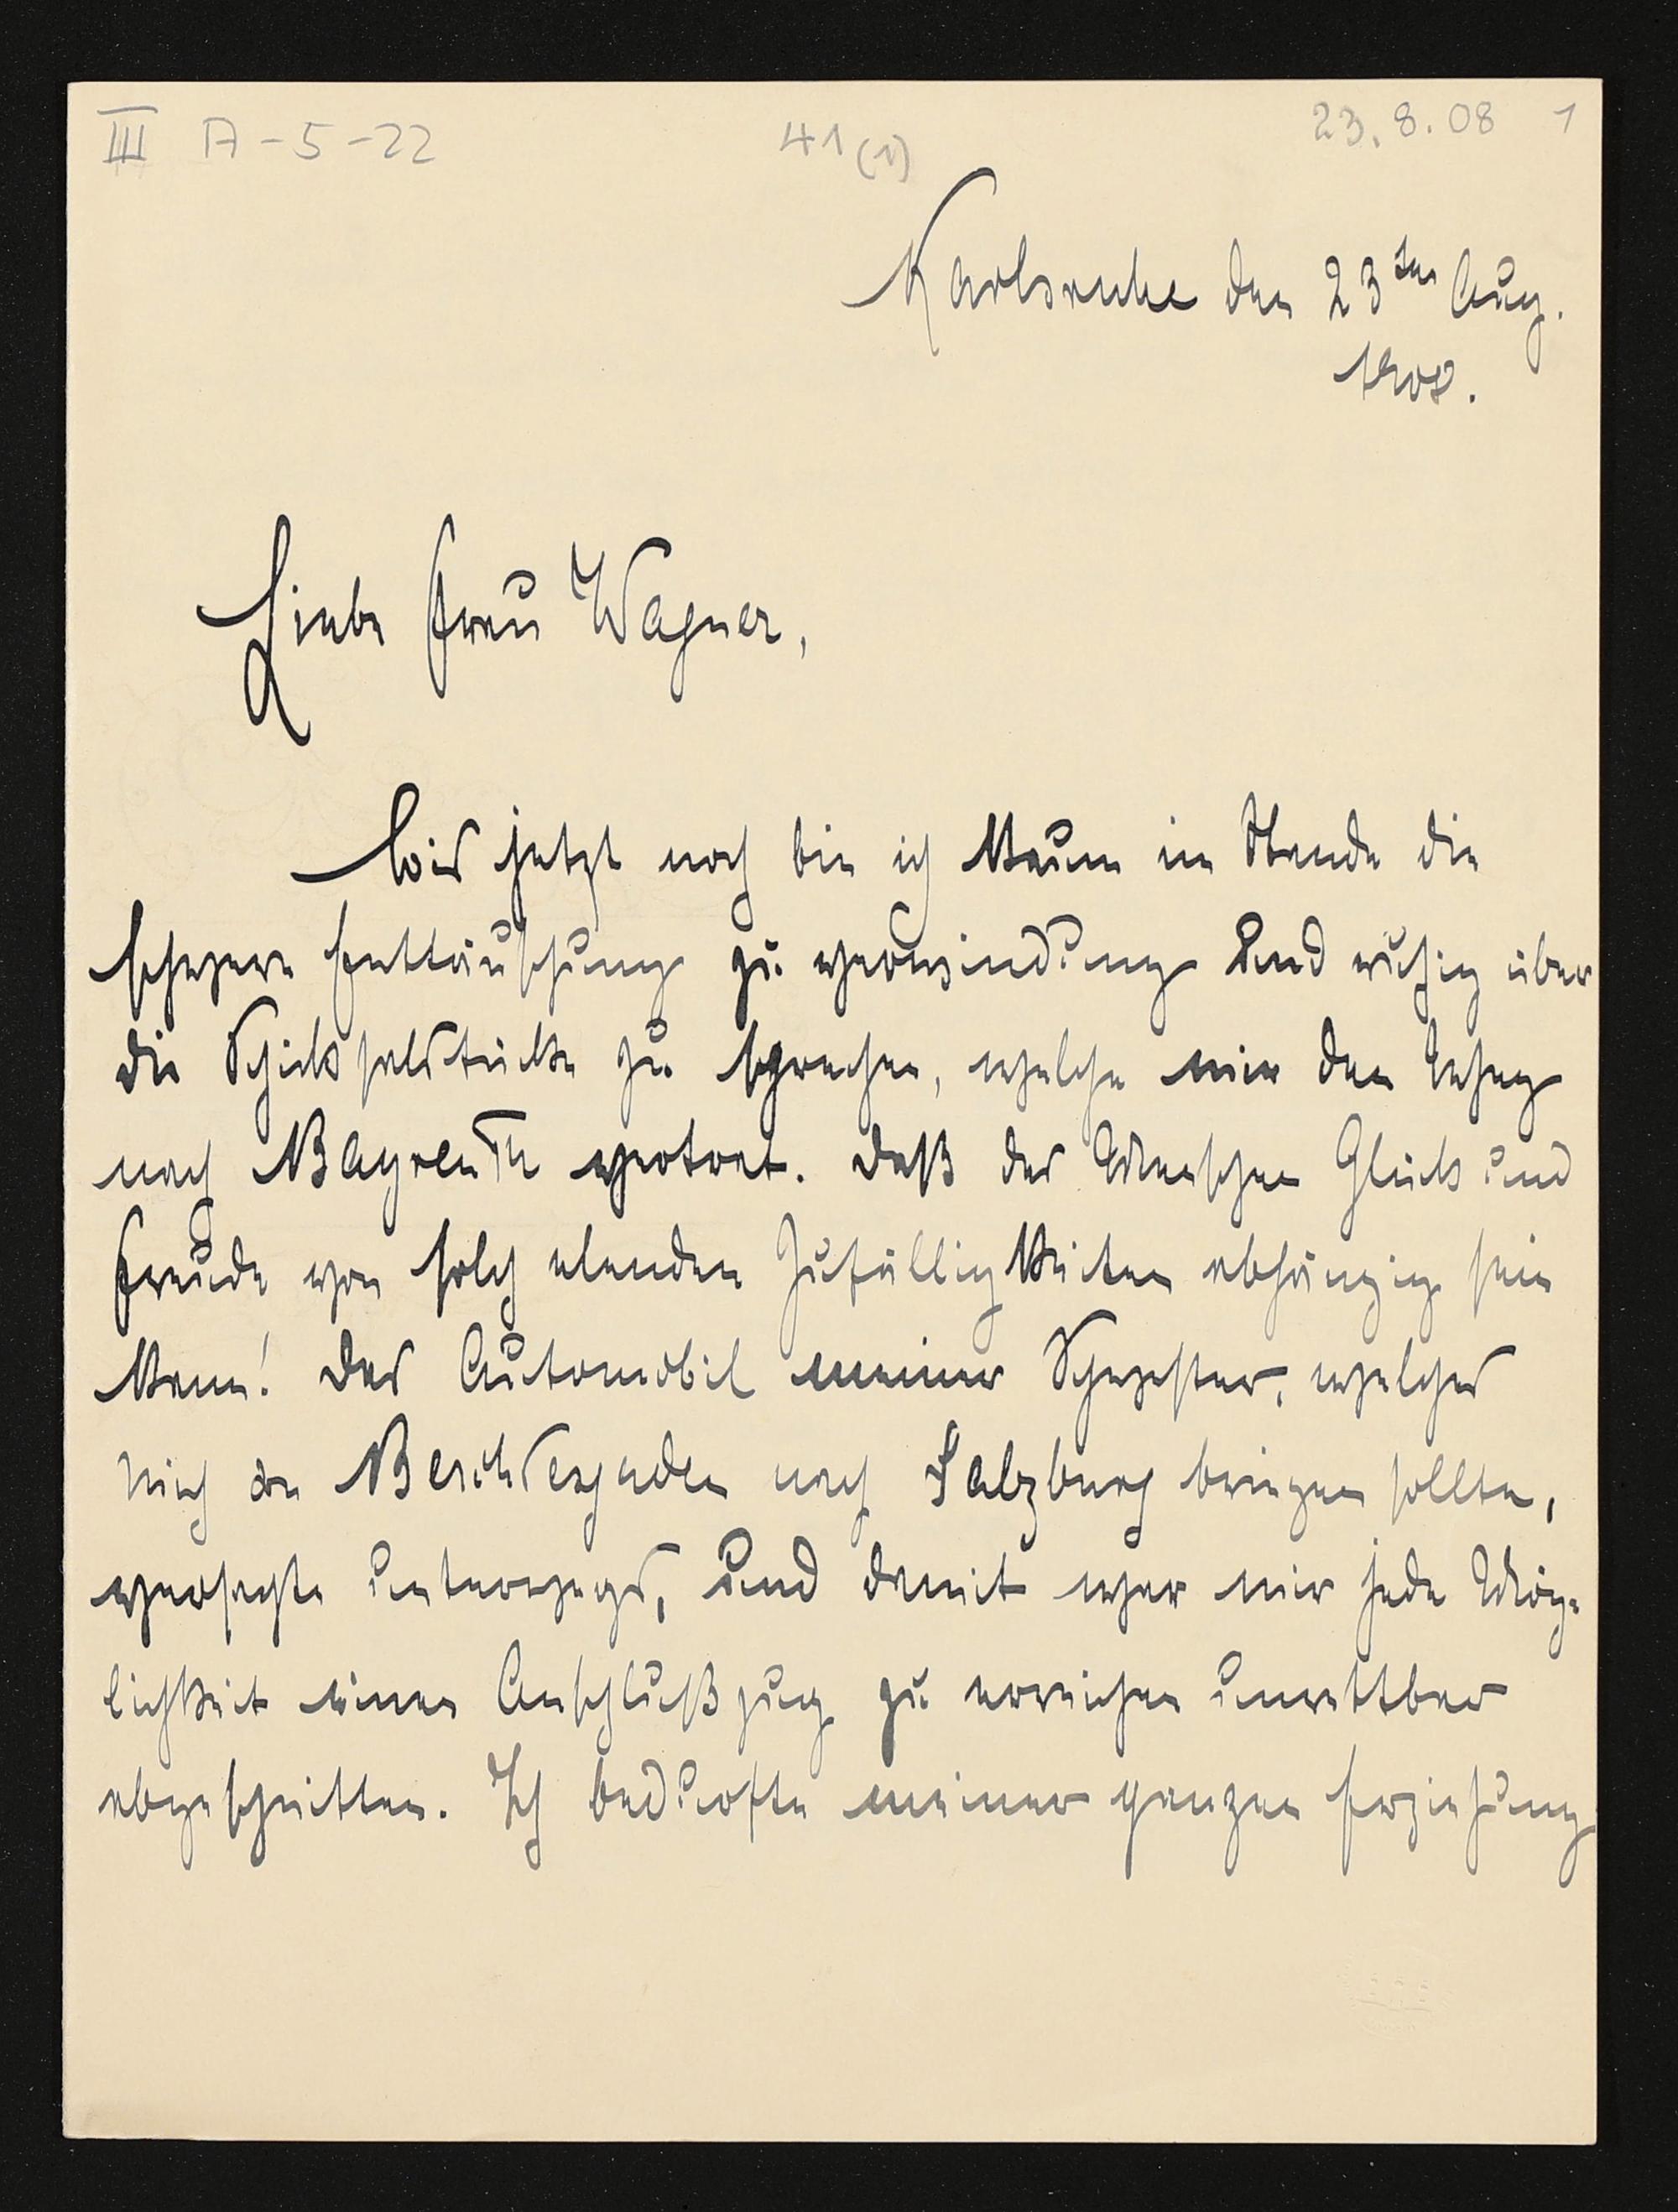 III A-5-22 41(1) 23.8.08 1
Karlsruhe den 23ten Aug.
1908.
Liebe Frau Wagner,
Bis jetzt noch bin ich kaum im Stande die
schwere Enttäuschung zu verwindung und ruhig über
die Schicksalstücke zu sprechen, welche mir den Weg
nach Bayreuth vertrat. Daß des Menschen Glück und
Freude von solch elenden Zufälligkeiten abhängig sein
kann! Das Automobil meiner Schwester, welches
mich von Berchtesgaden nach Salzburg bringen sollte,
versagte unterwegs, und damit war mir jede Mög-
lichkeit einen Anschlußzug zu erreichen unrettbar
abgeschnitten. Ich bedurfte meiner ganzen Erziehung